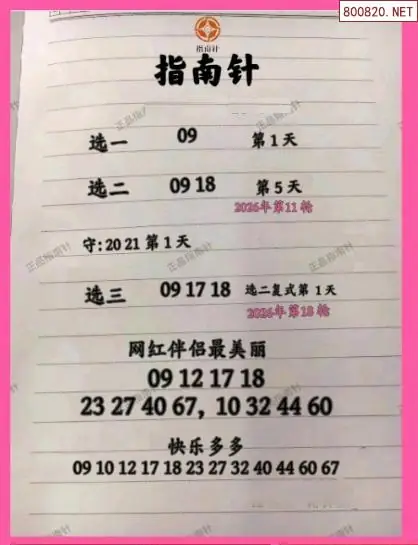 800820.NET
指南针
指南针
选一 09 第1天
选二 09 18 第5天
2026年第11轮
守:20 21 第1天
选三 09 17 18 选二复式第1天
2026年第18轮
网红伴侣最美丽
09 12 17 18
23 27 40 67, 10 32 44 60
快乐多多
09 10 12 17 18 23 27 32 40 44 60 67
正品指南针
正品指南针
正品指南针
正品指南针
正品指南针